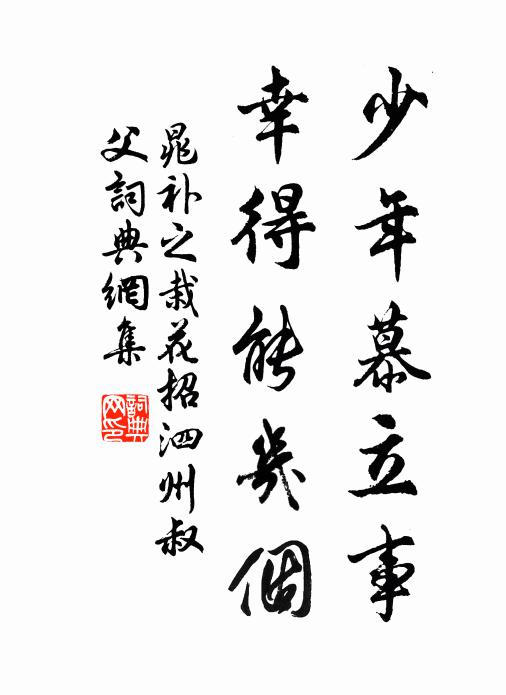 少年慕立事
幸得能幾個
晁补之栽花招泗州叔
父詞典網集
詞典
网印